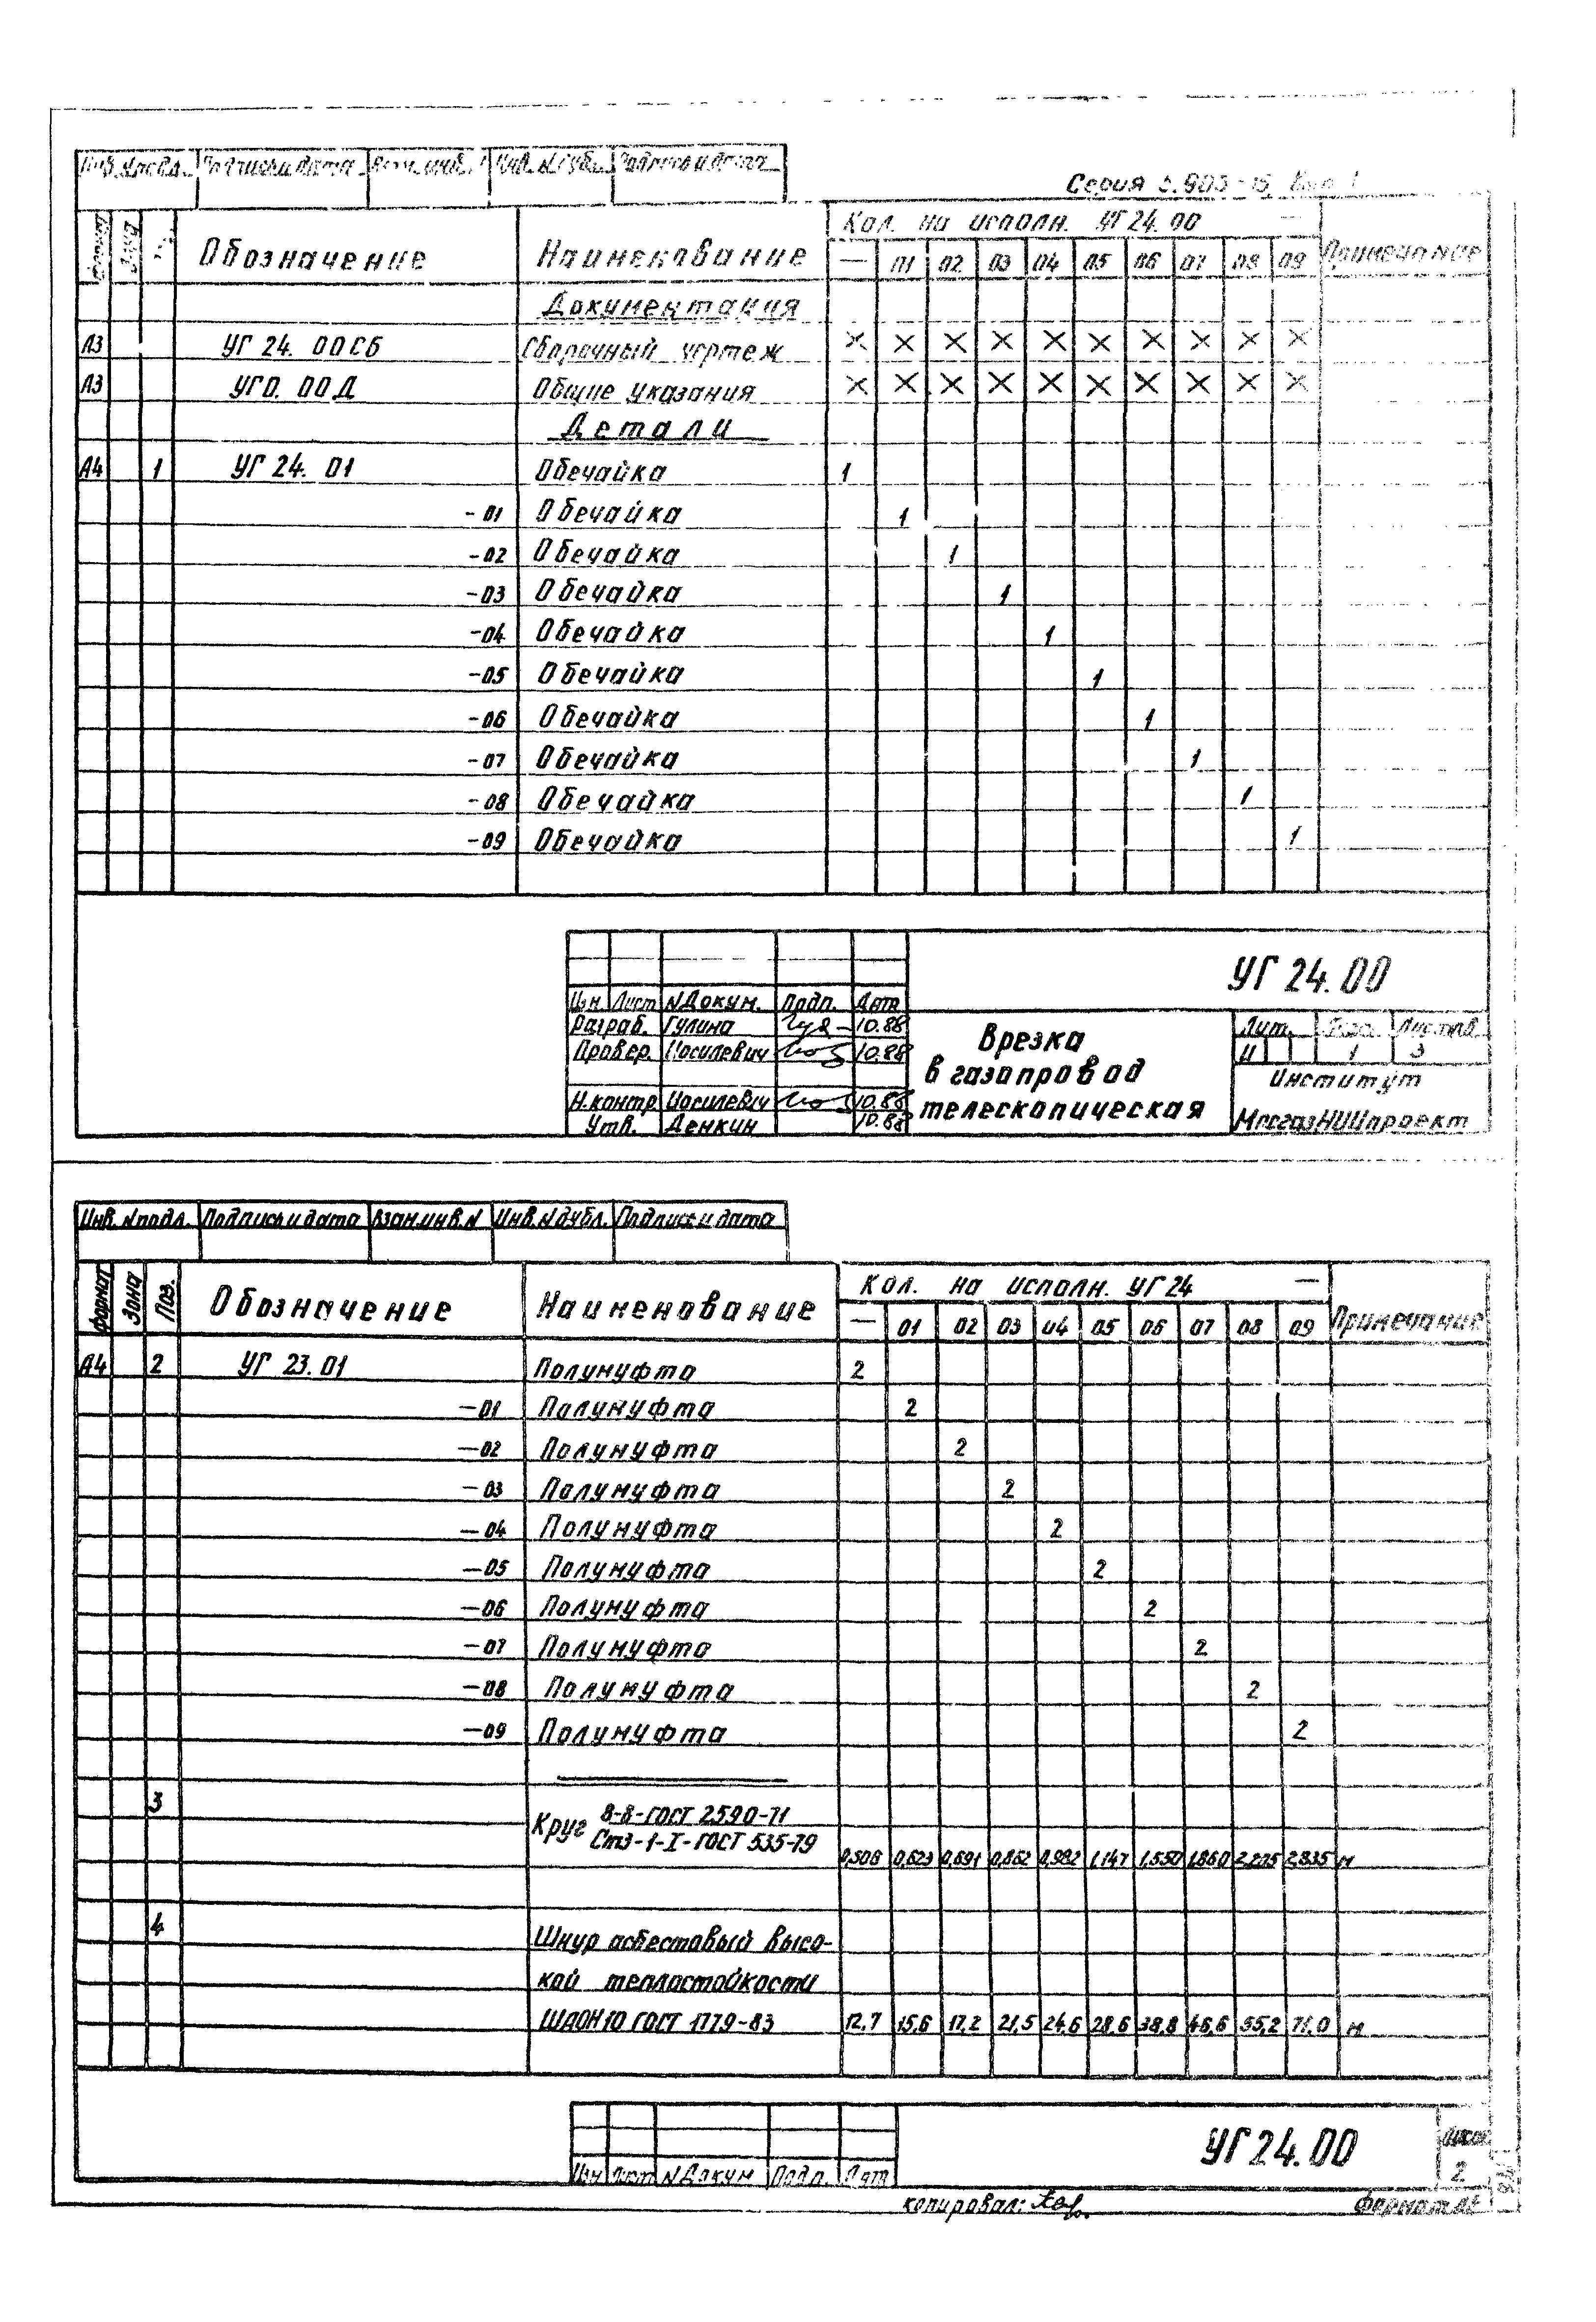 Инв. № подл. Подпись и дата Взам. инв. № Инв. № дубл. Подпись и дата
Серия 5.905-15 Вып. 1
Формат Зона Обозначение Наименование Кол. на исполн. УГ 24.00 — Примечание
— 01 02 03 04 05 06 07 08 09
Документация
А3 УГ 24. 00 СБ Сборочный чертеж × × × × × × × × × ×
А3 УГО. 00 Д Общие указания × × × × × × × × × ×
Детали
А4 1 УГ 24. 01 Обечайка 1
-01 Обечайка 1
-02 Обечайка 1
-03 Обечайка 1
-04 Обечайка 1
-05 Обечайка 1
-06 Обечайка 1
-07 Обечайка 1
-08 Обечайка 1
-09 Обечайка 1
УГ 24.00
Изм. Лист № Докум. Подп. Дата
Разраб. Гулина 10.88
Провер. Иосилевич 10.88
Н. контр. Иосилевич 10.88
Утв. Денкин 10.88
Врезка
в газопровод
телескопическая
Лит. Лист Листов
И 1 3
Институт
МосгазНИИпроект
Инв. № подл. Подпись и дата Взам. инв. № Инв. № дубл. Подпись и дата
Формат Зона Поз. Обозначение Наименование Кол. на исполн. УГ 24 — Примечание
— 01 02 03 04 05 06 07 08 09
А4 2 УГ 23. 01 Полумуфта 2
—01 Полумуфта 2
—02 Полумуфта 2
—03 Полумуфта 2
—04 Полумуфта 2
—05 Полумуфта 2
—06 Полумуфта 2
—07 Полумуфта 2
—08 Полумуфта 2
—09 Полумуфта 2
3 Круг 8-В-ГОСТ 2590-71
Ст3-1-I-ГОСТ 535-79
0,506 0,623 0,691 0,862 0,982 1,147 1,550 1,860 2,205 2,835 м
4 Шнур асбестовый высо-
кой теплостойкости
ШАОН 10 ГОСТ 1779-83 12,7 15,6 17,2 21,5 24,6 28,6 38,8 46,6 55,2 71,0 м
УГ 24.00
Лист
2
Изм Лист № Докум Подп. Дата
копировал:
Формат А4